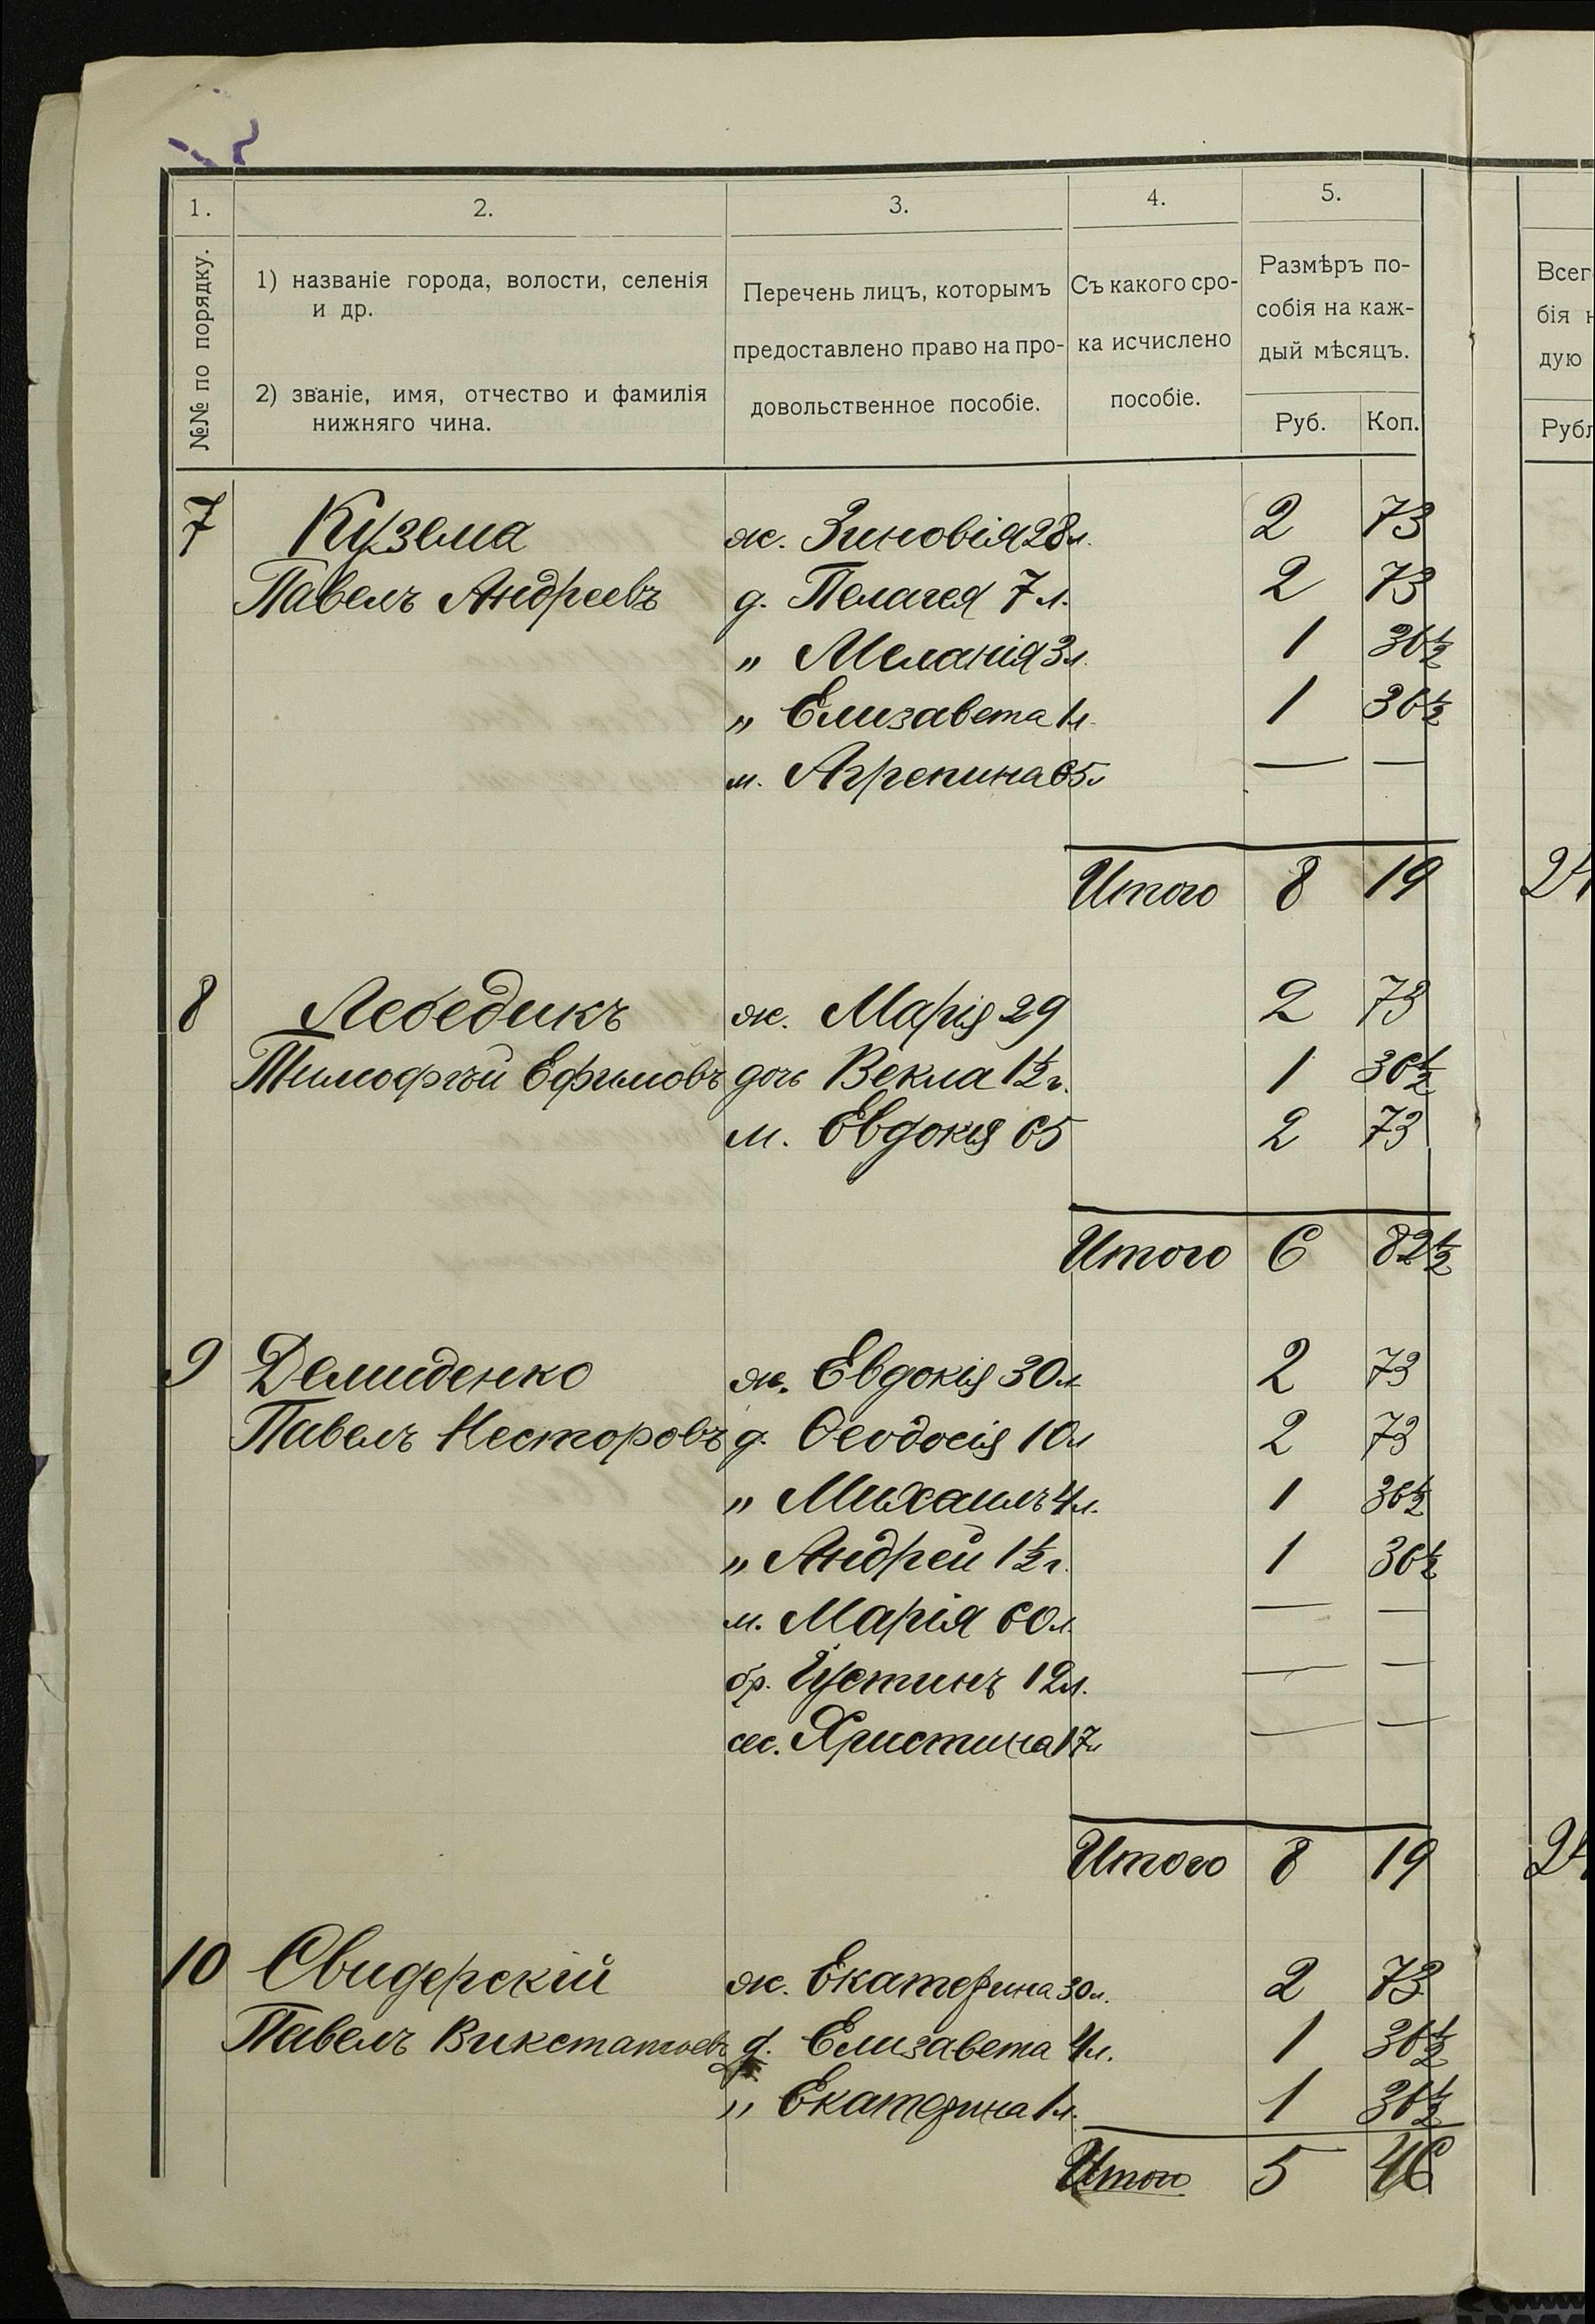 1. 2. 3. 4. 5.
№№ по порядку.
1) названіе города, волости, селенія
и др.
2) званіе, имя, отчество и фамилія
нижняго чина.
Перечень лицъ, которымъ
предоставлено право на про-
довольственное пособіе.
Съ какого сро-
ка исчислено
пособіе.
Размѣръ по-
собія на каж-
дый мѣсяцъ.
Руб. Коп.
7 Кузема ж. Зиновія 28 л. 2 73
Павелъ Андреевъ д. Пелагея 7 л. 2 73
" Меланія 3 л. 1 36½
" Елизавета 1 л. 1 36½
м. Агрепина 65 л — —
Итого 8 19
8 Лебедикъ ж. Марія 29 2 73
Тимофѣй Ефимовъ дочь Векла 1½ г. 1 36½
м. Евдокія 65 2 73
Итого 6 82½
9 Демиденко ж. Евдокія 30 л 2 73
Павелъ Несторовъ д. Ѳеодосія 10 л 2 73
" Михаилъ 4 л. 1 36½
" Андрей 1½ г. 1 36½
м. Марія 60 л. — —
бр. Іустинъ 12 л. — —
сес. Христина 17 л — —
Итого 8 19
10 Свидерскій ж. Екатерина 30 л. 2 73
Павелъ д. Елизавета 4 л. 1 36½
" Екатерина 1 л. 1 36½
Итого 5 46
Всег
бія н
дую
Рубл
24
24